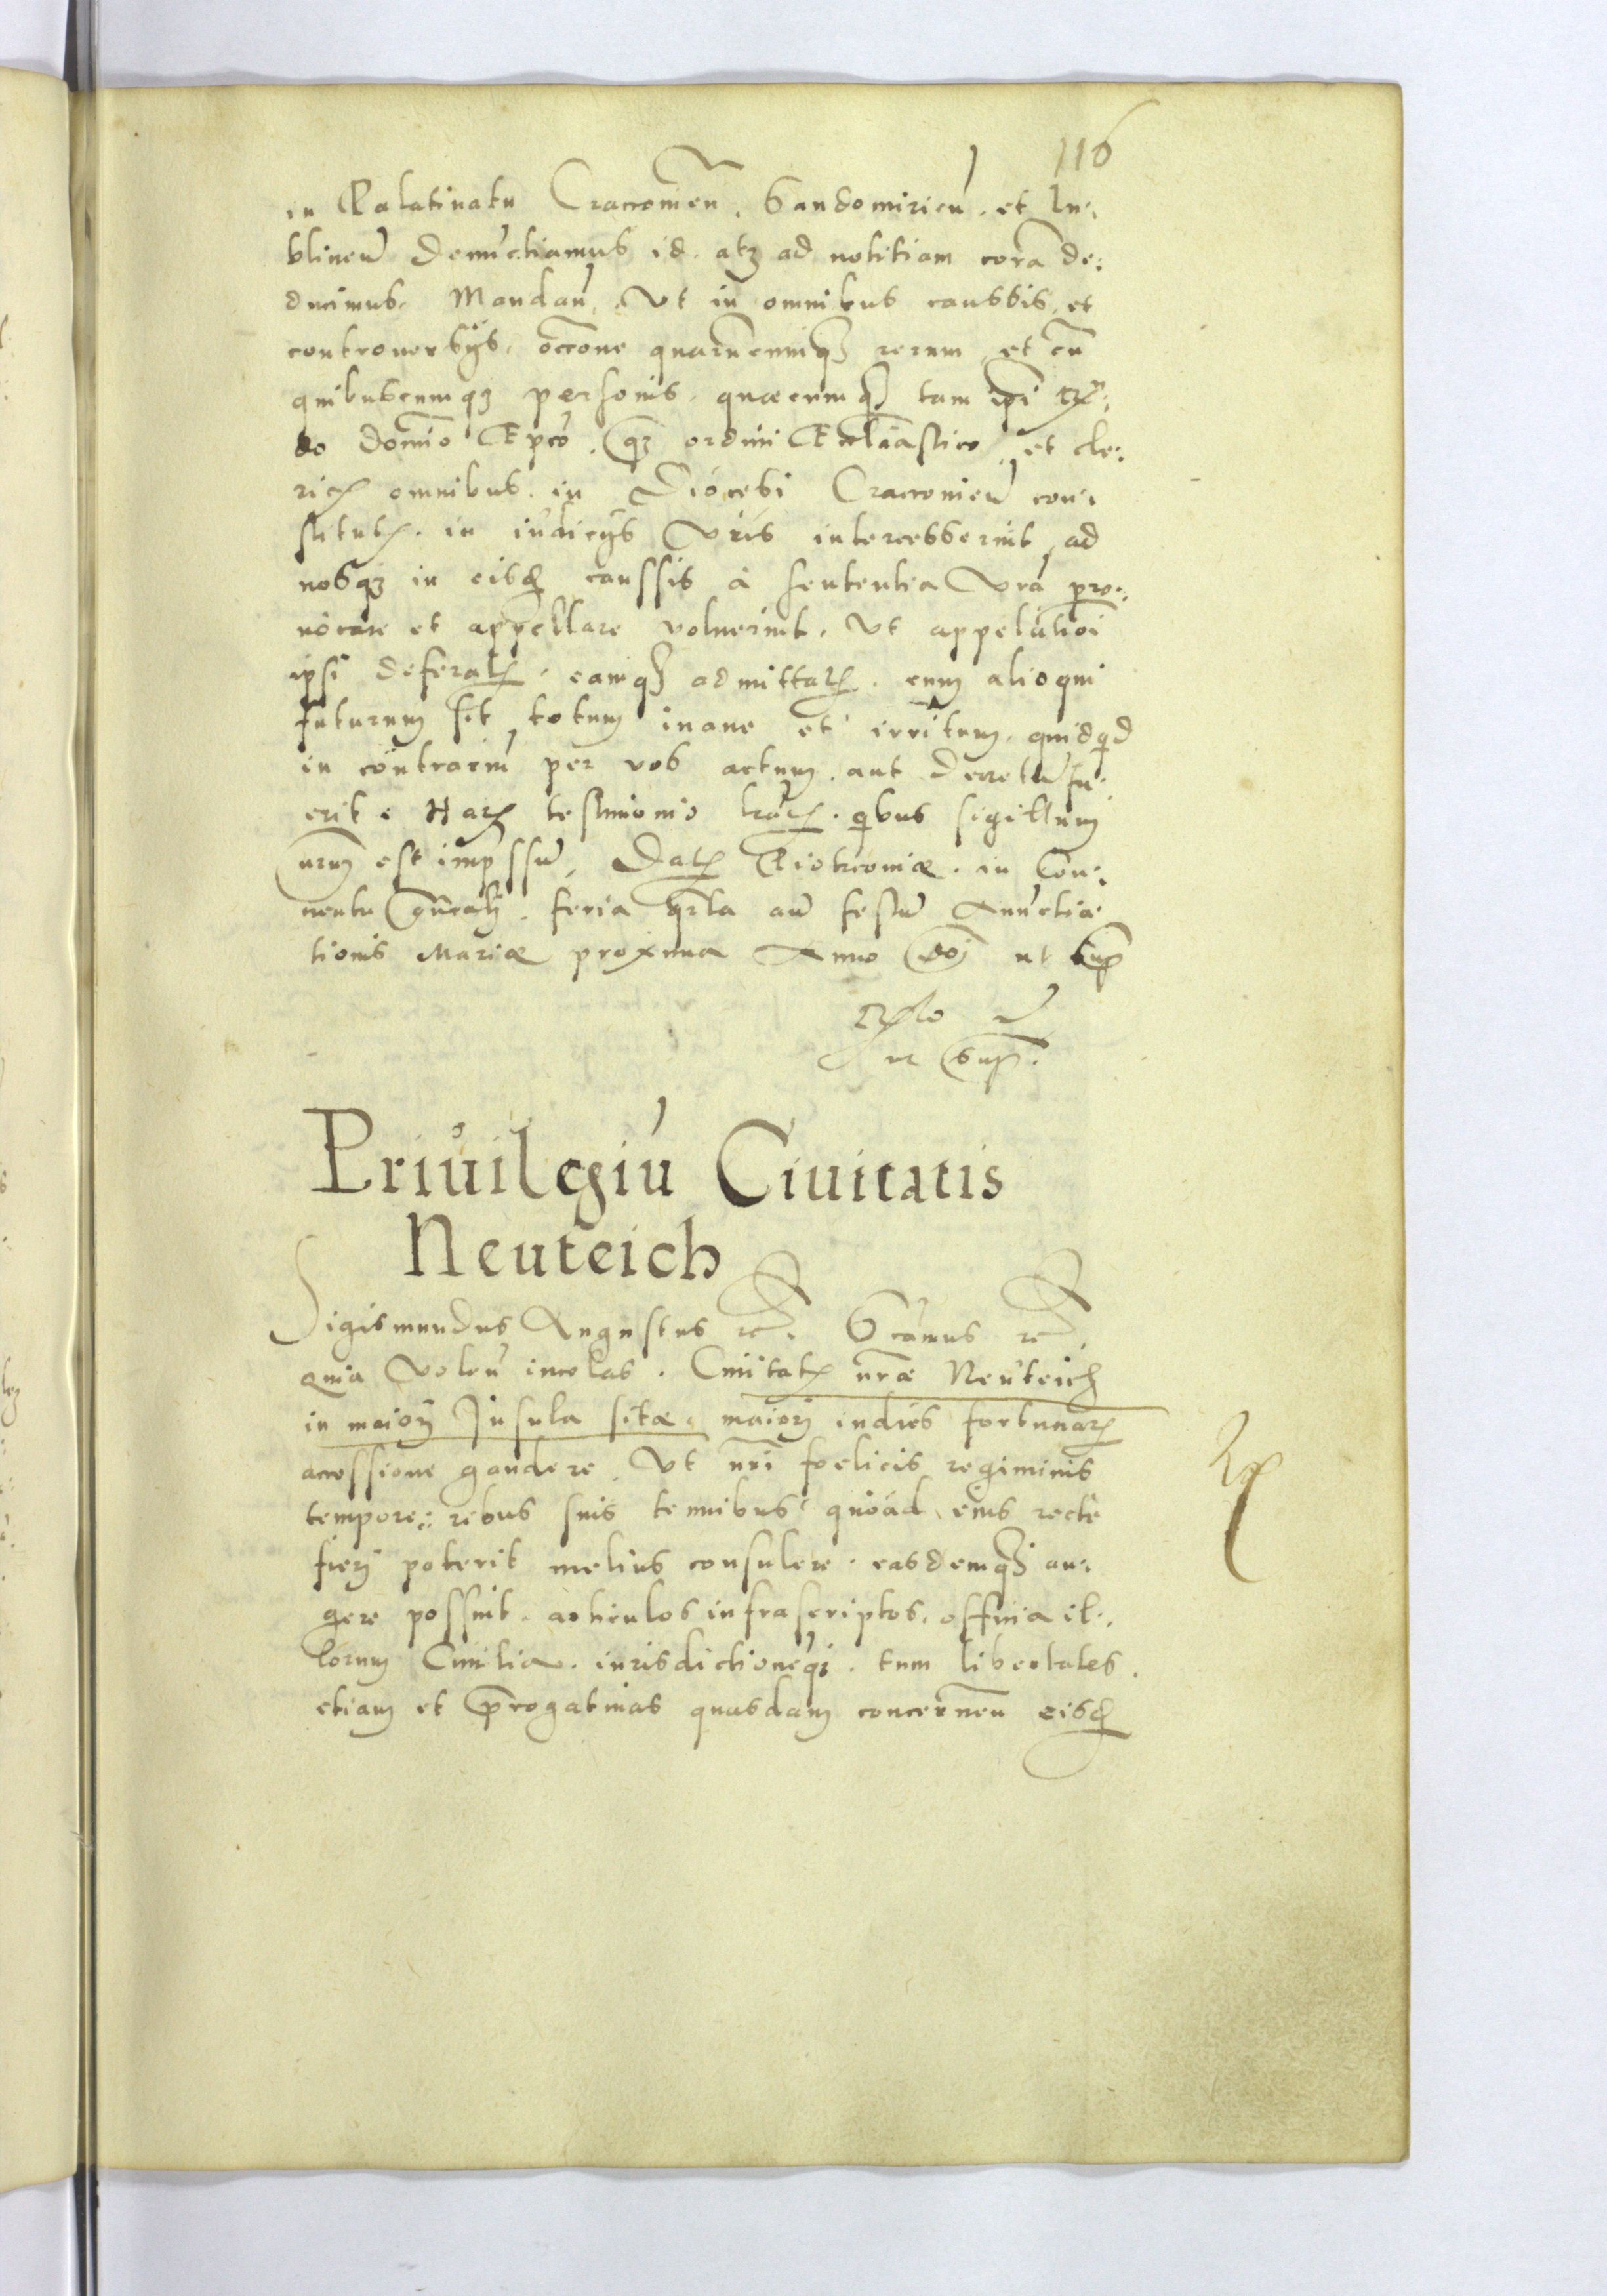 116
in Palatinatu Cracouien̄. Sandomirien̄. et Lu:
blinen̄ Denūctiamus id. atq₃ ad notitiam eorā de:
ducimus. Mandan̄. Vt in omnibus caussis et
controuersijs, occōne quarūcunq₃ rerum et cū
quibuscumq₃ personis, quæcumq₃ tam ipī Rn:
do Domīo Epō. q₃ ordini Eccliastico, et cle:
ricis omnibus in Diocesi Cracouien̄ con:
stitutis. in iudicijs Vr̄is intercesserint, ad
nosq₃ in eisd̄ caussis à sententia Vr̄a pro:
uocare et appellare voluerint. Vt appelatiōi
ipsi deferatis. eamq₃ admittatis. cum alioqui
futurum sit totum inane et irritum. quidqd
in contrariū per vos actum aut Decretū fu:
erit. Harum testimonio lrārum. qibus sigillum
nr̄um est imp̄ssū. Datum Piotrcouiæ. in Con:
uentu gn̄rali. feria qrta an̄ festū Annūctia:
tionis Mariæ proxima Anno Dōi ut sup̄
Rlo D
ut sup̄.
Priuilegiū Ciuitatis
Neuteich
Sigismundus Augustus etc. Sc̄amus etc.
Quia Volen̄ incolas. Ciuitatis nr̄æ Neuteich
in maiori Insula sitæ. maiori indies fortunarum
accessione gaudere. Vt nr̄i foelicis regiminis
tempore: rebus suis tenuibus quoad eius recte
fieri poterit melius consulere. easdemq₃ au:
gere possint. articulos infrascriptos. officia il:
lorum Ciuilia. iurisdictioneq₃. tum libertates.
etiam et p̄rogatiuas quasdam concernen̄ eisd̄